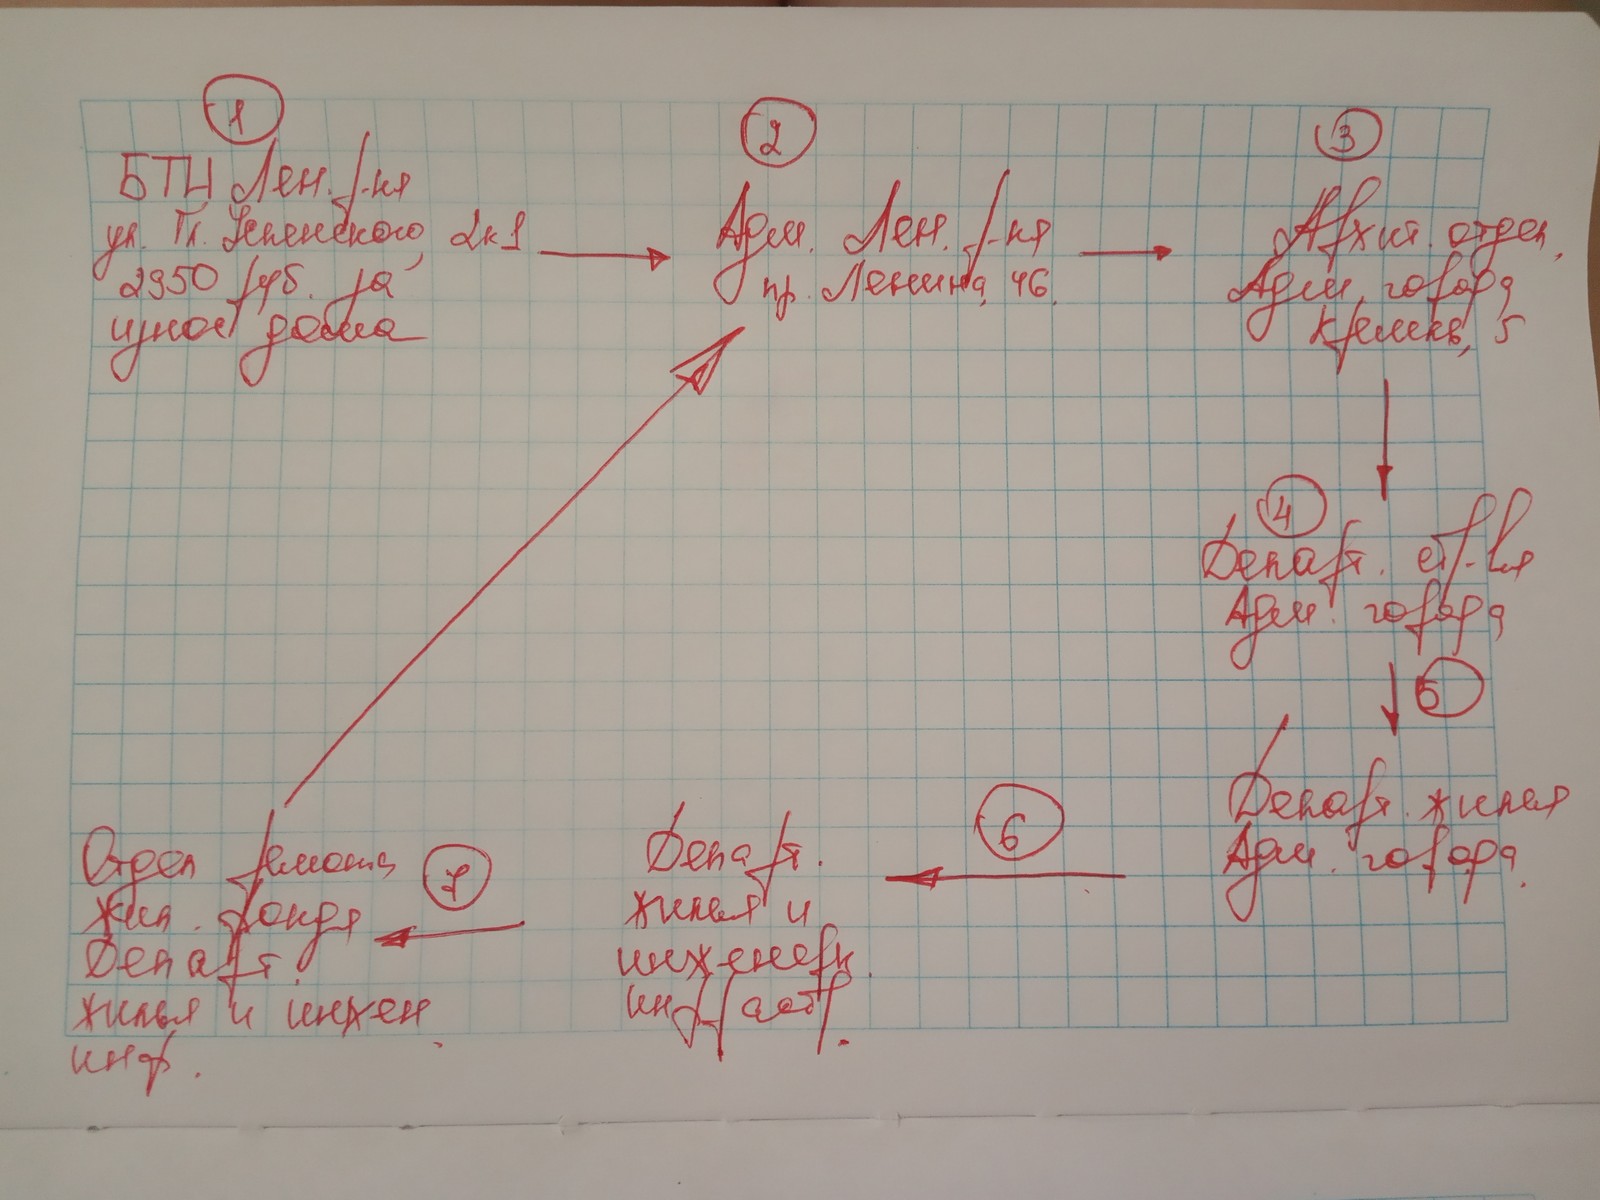 1
БТИ Лен. р-на
ул. Гл. Успенского, 2к1
2950 руб. за
износ дома
2
Адм. Лен. р-на
пр. Ленина, 46.
3
Архит. отдел,
Адм. города
Кремль, 5
4
Департ. стр-ва
Адм. города
5
Департ. жилья
Адм. города.
6
Департ.
жилья и
инженерн.
инфрастр.
7
Отдел ремонта
жил. фонда
Департ.
жилья и инжен.
инф.